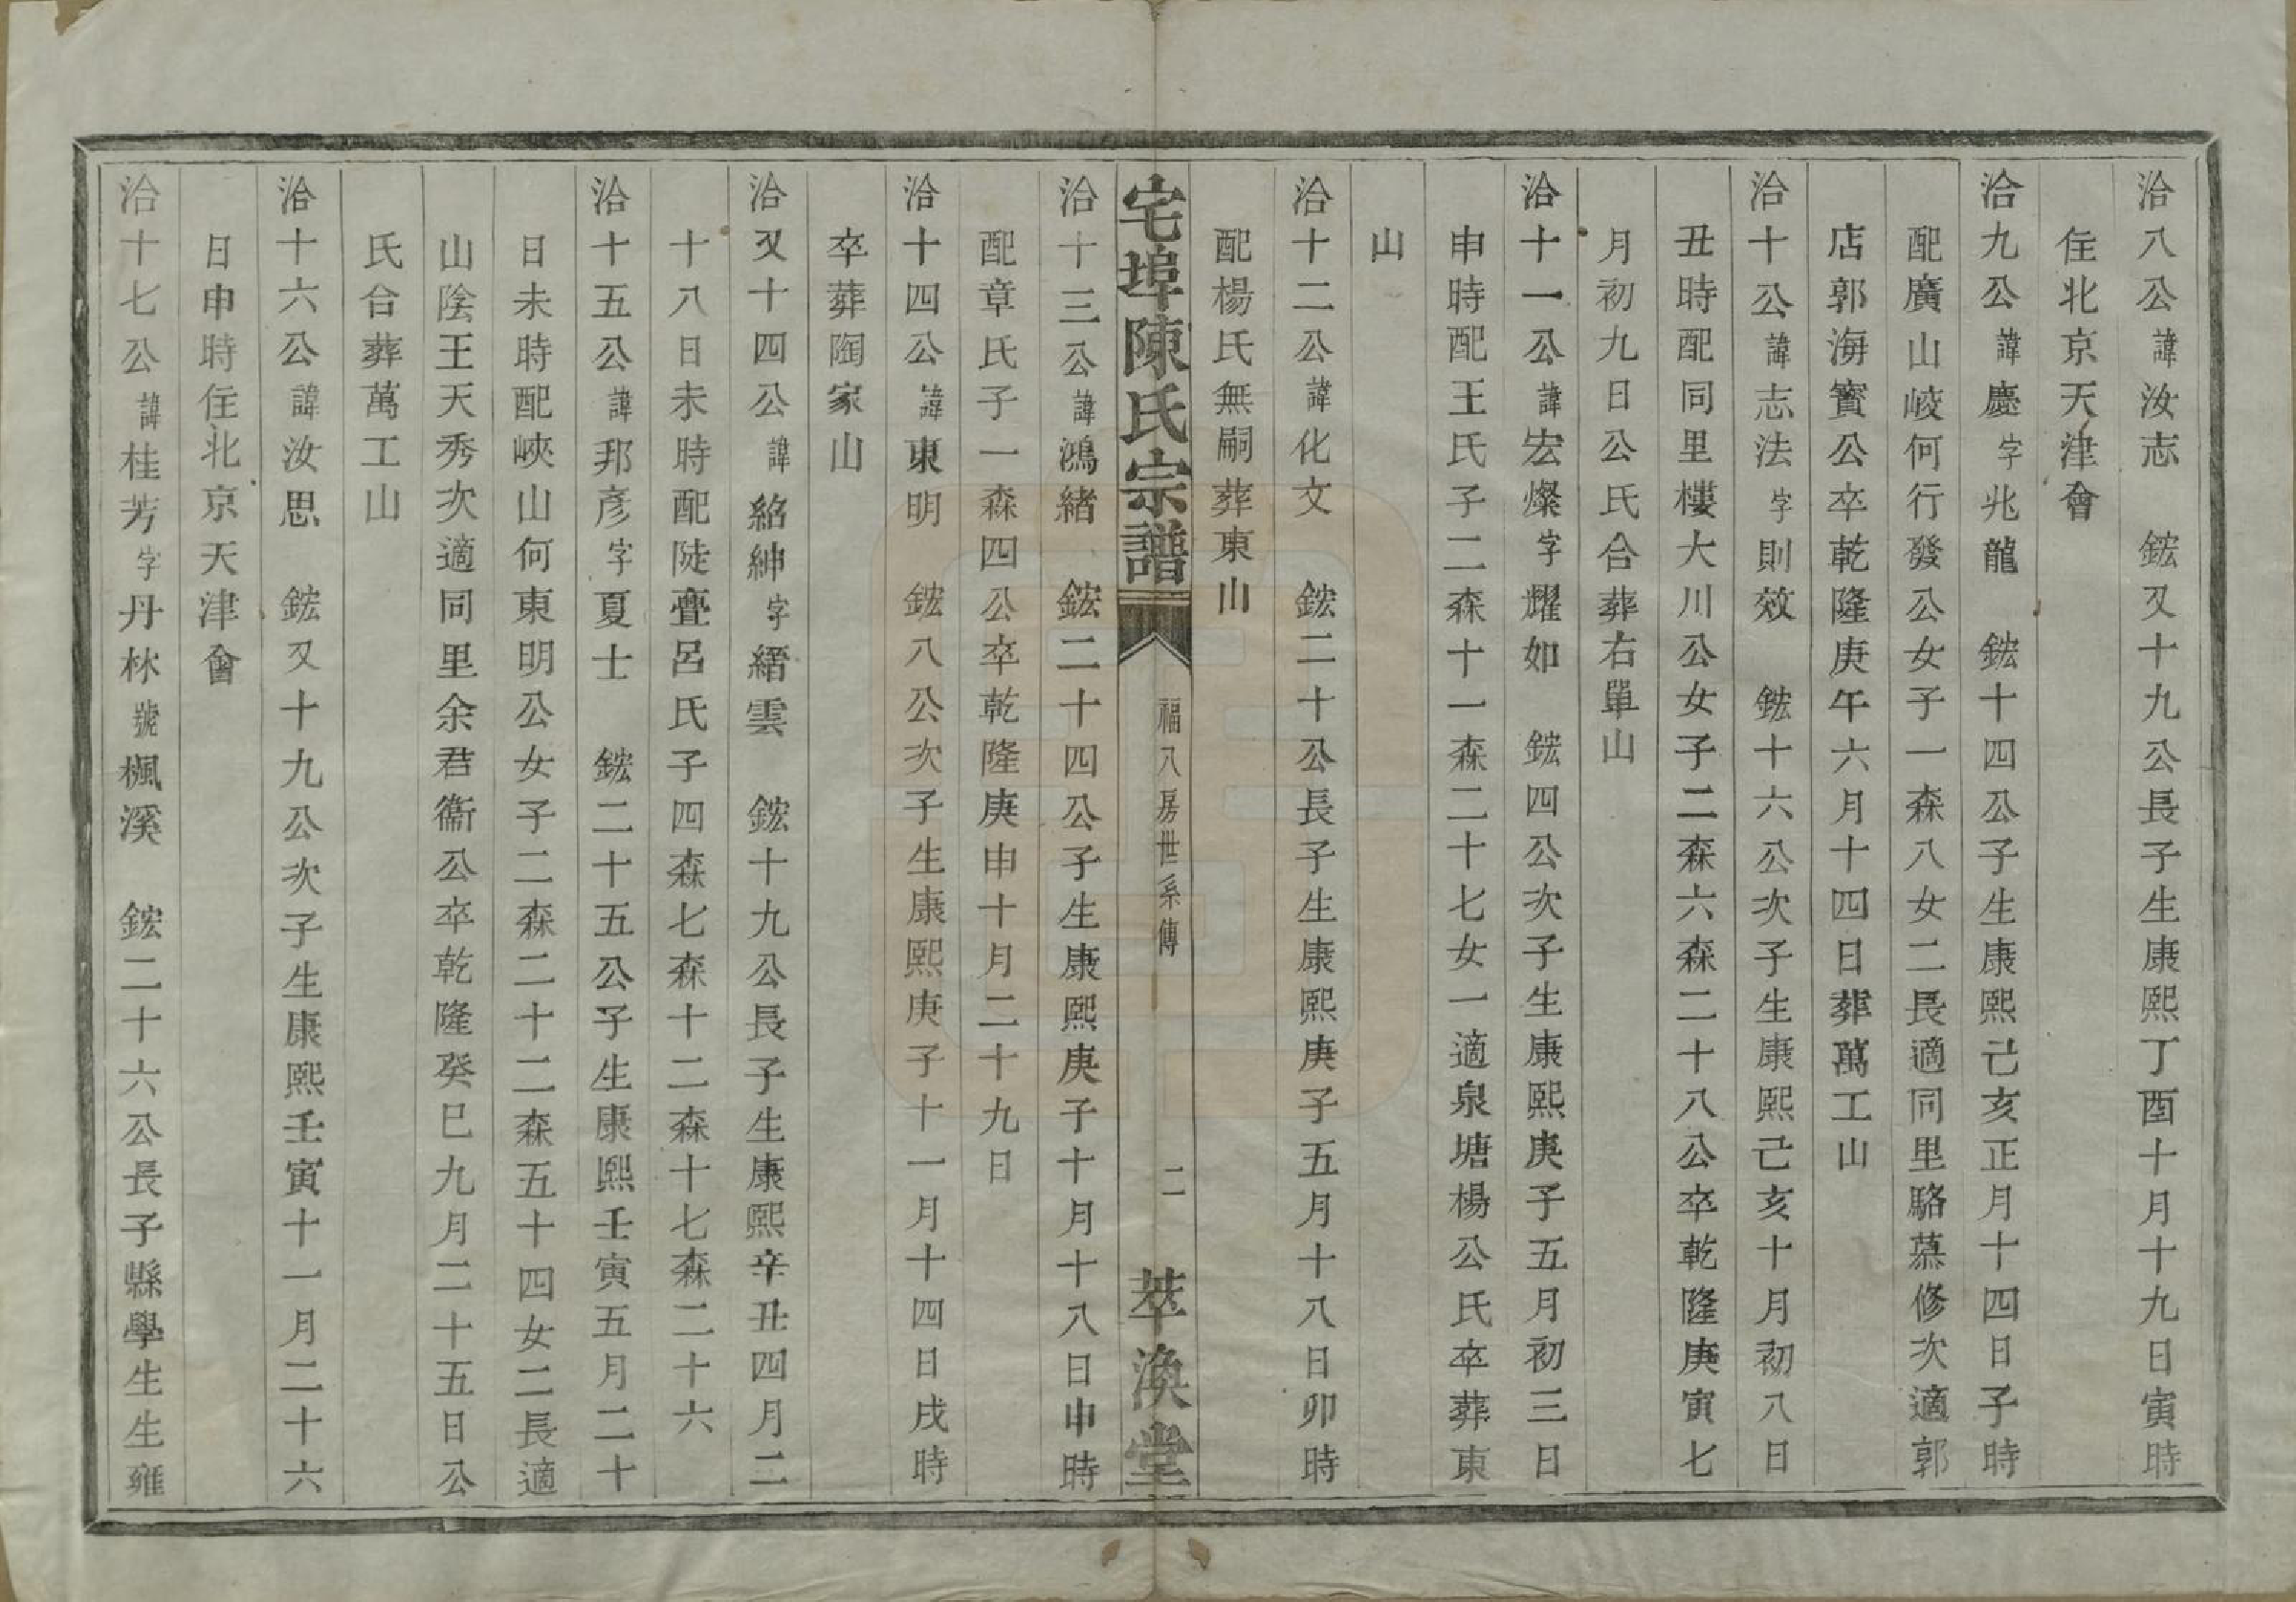 洽八公諱汝志　鋐又十九公長子生康熙丁酉十月十九日寅時
住北京天津會
洽九公諱慶字兆龍　鋐十四公子生康熙己亥正月十四日子時
配廣山峧何行發公女子一森八女二長適同里駱慕修次適郭
店郭海賓公卒乾隆庚午六月十四日葬萬工山
洽十公諱志法字則效　鋐十六公次子生康熙己亥十月初八日
丑時配同里樓大川公女子二森六森二十八公卒乾隆庚寅七
月初九日公氏合葬右單山
洽十一公諱宏燦字耀如　鋐四公次子生康熙庚子五月初三日
申時配王氏子二森十一森二十七女一適泉塘楊公氏卒葬東
山
洽十二公諱化文　鋐二十公長子生康熙庚子五月十八日卯時
配楊氏無嗣葬東山
宅埠陳氏宗譜　福八房世系傳　二　萃渙堂
洽十三公諱鴻緒　鋐二十四公子生康熙庚子十月十八日申時
配章氏子一森四公卒乾隆庚申十月二十九日
洽十四公諱東明　鋐八公次子生康熙庚子十一月十四日戌時
卒葬陶家山
洽又十四公諱紹紳字縉雲　鋐十九公長子生康熙辛丑四月二
十八日未時配陡亹呂氏子四森七森十二森十七森二十六
洽十五公諱邦彥字夏士　鋐二十五公子生康熙壬寅五月二十
日未時配峽山何東明公女子二森二十二森五十四女二長適
山陰王天秀次適同里余君衞公卒乾隆癸巳九月二十五日公
氏合葬萬工山
洽十六公諱汝思　鋐又十九公次子生康熙壬寅十一月二十六
日申時住北京天津會
洽十七公諱桂芳字丹林號楓溪　鋐二十六公長子縣學生生雍